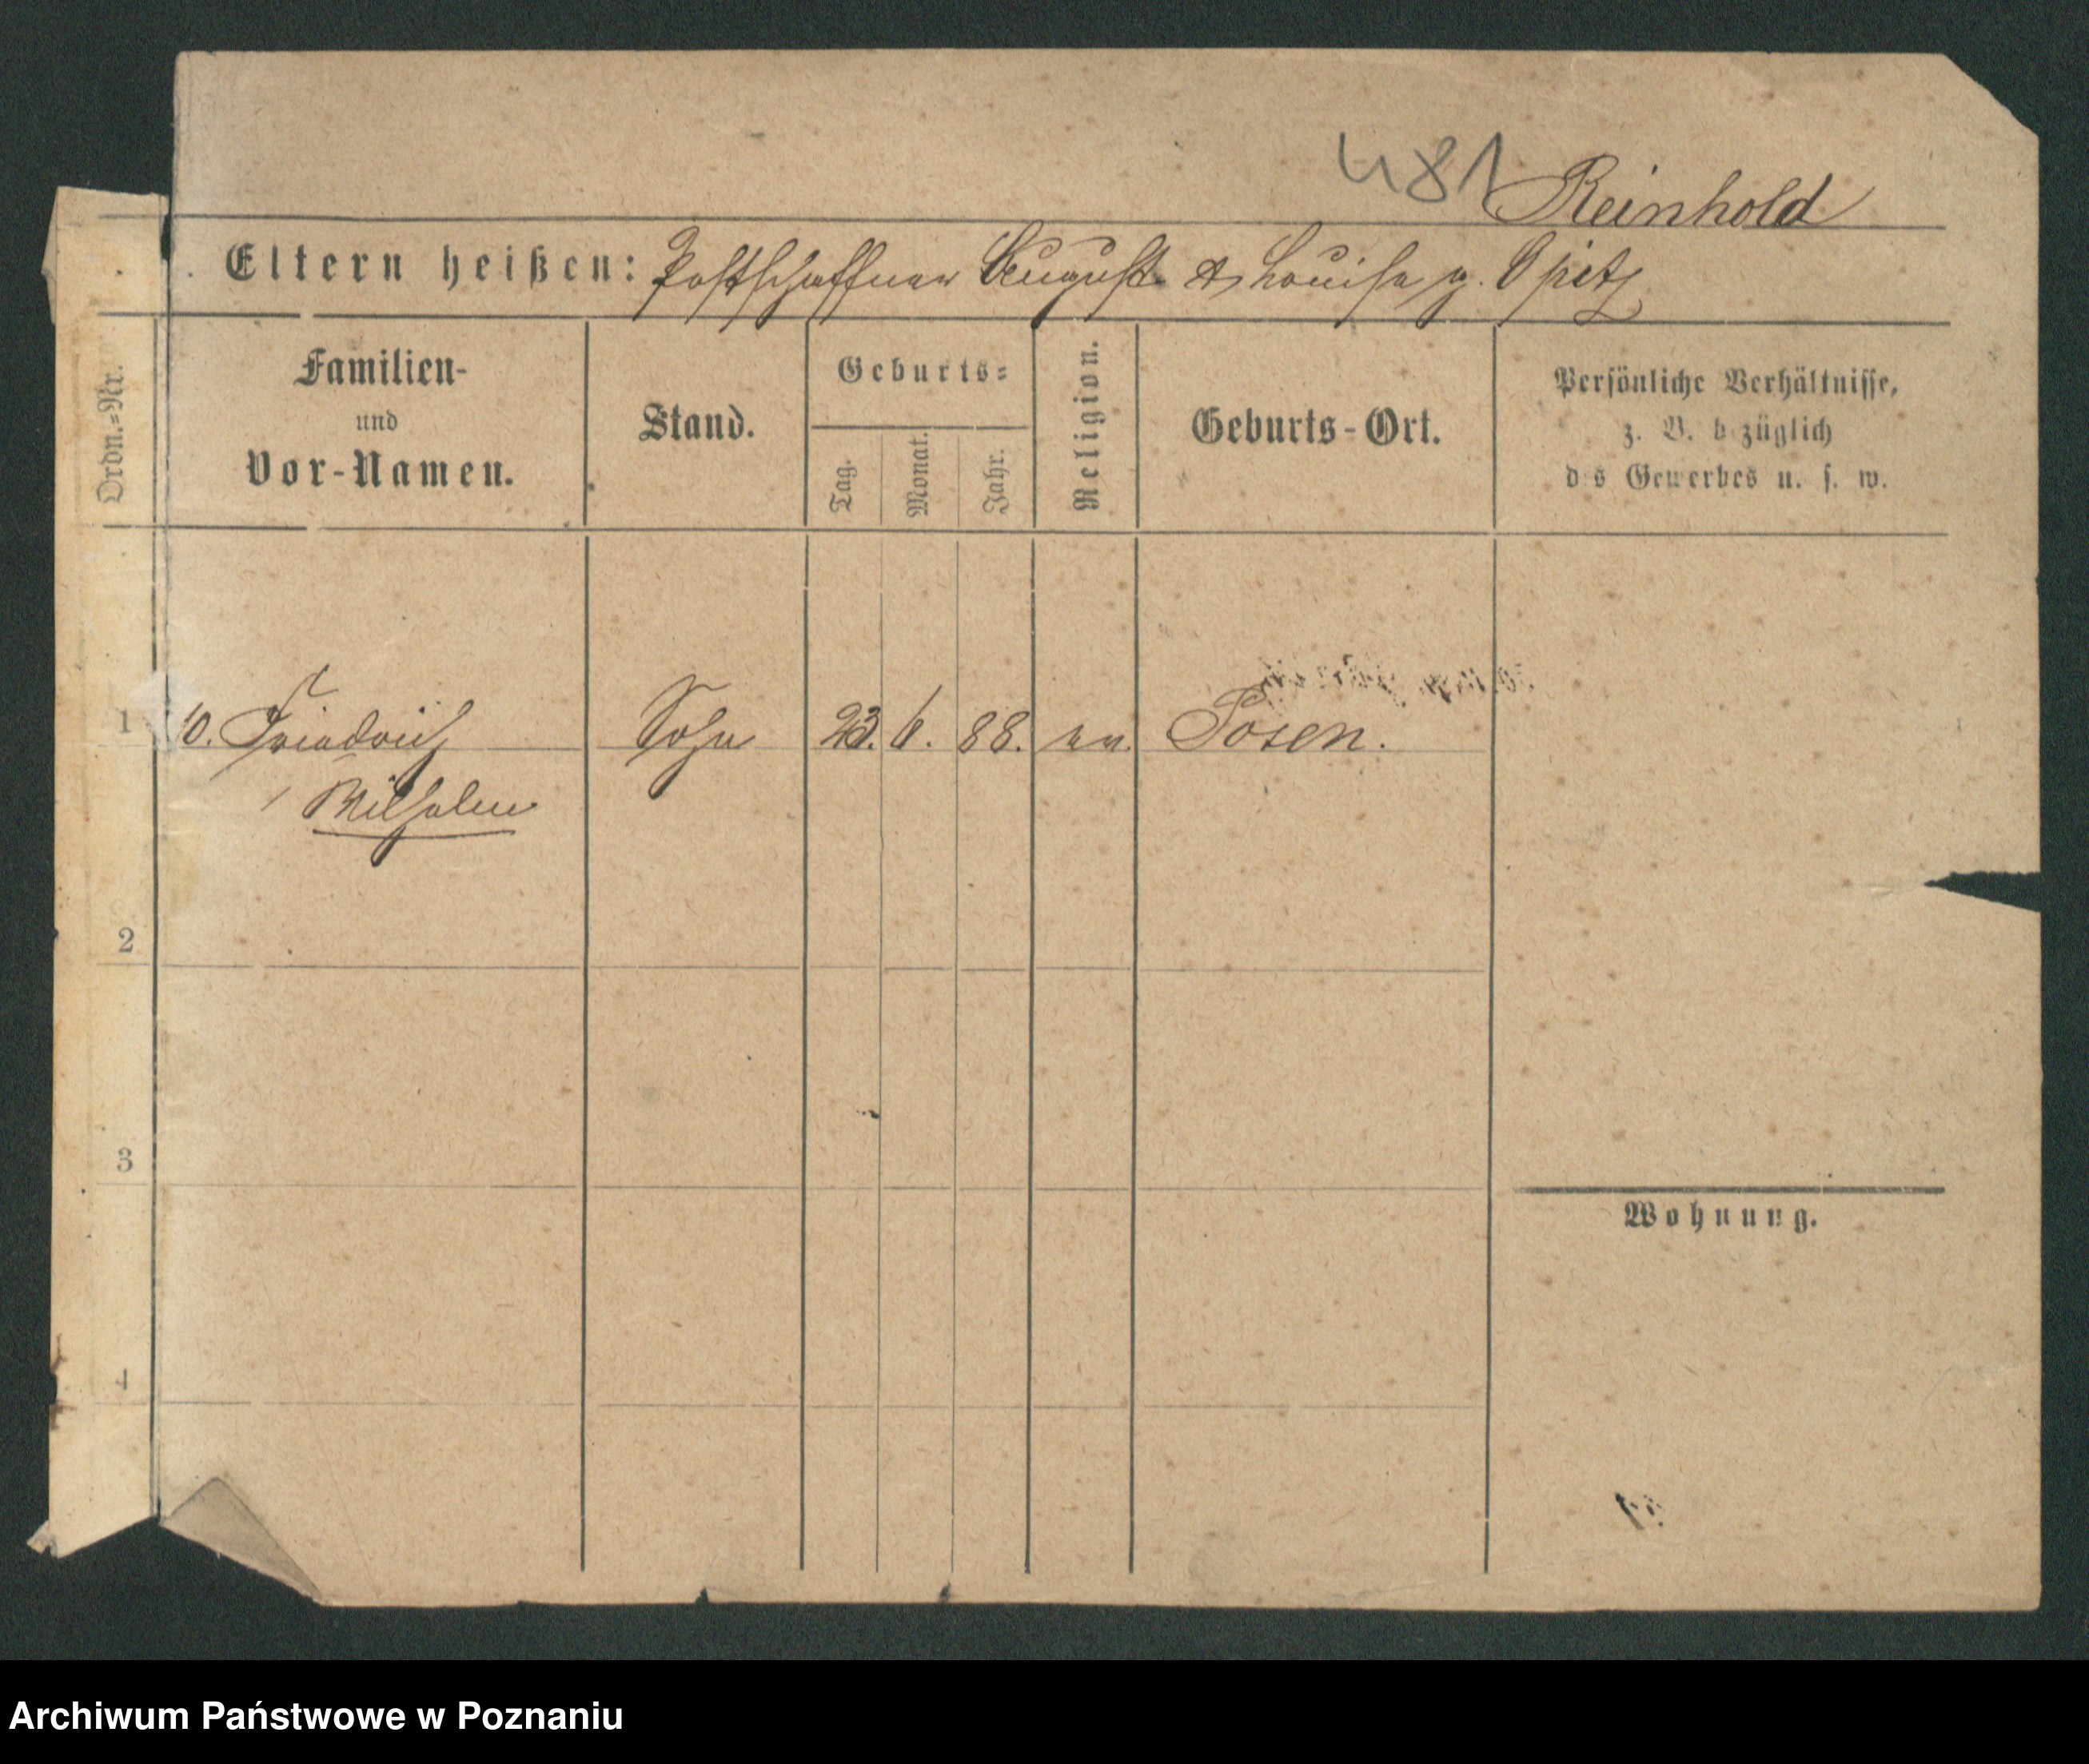 481 Reinhold
Eltern heißen: Postschaffner August & Louise g. Opitz
Ordn.-Nr.
Familien-
und
Vor-Namen.
Stand.
Geburts-
Tag.
Monat.
Jahr.
Religion.
Geburts-Ort.
Persönliche Verhältnisse,
z. B. bezüglich
des Gewerbes u. s. w.
1 10. Friedrich Sohn 23. 6. 88. ev. Posen.
Wilhelm
2
3
Wohnung.
4
Archiwum Państwowe w Poznaniu